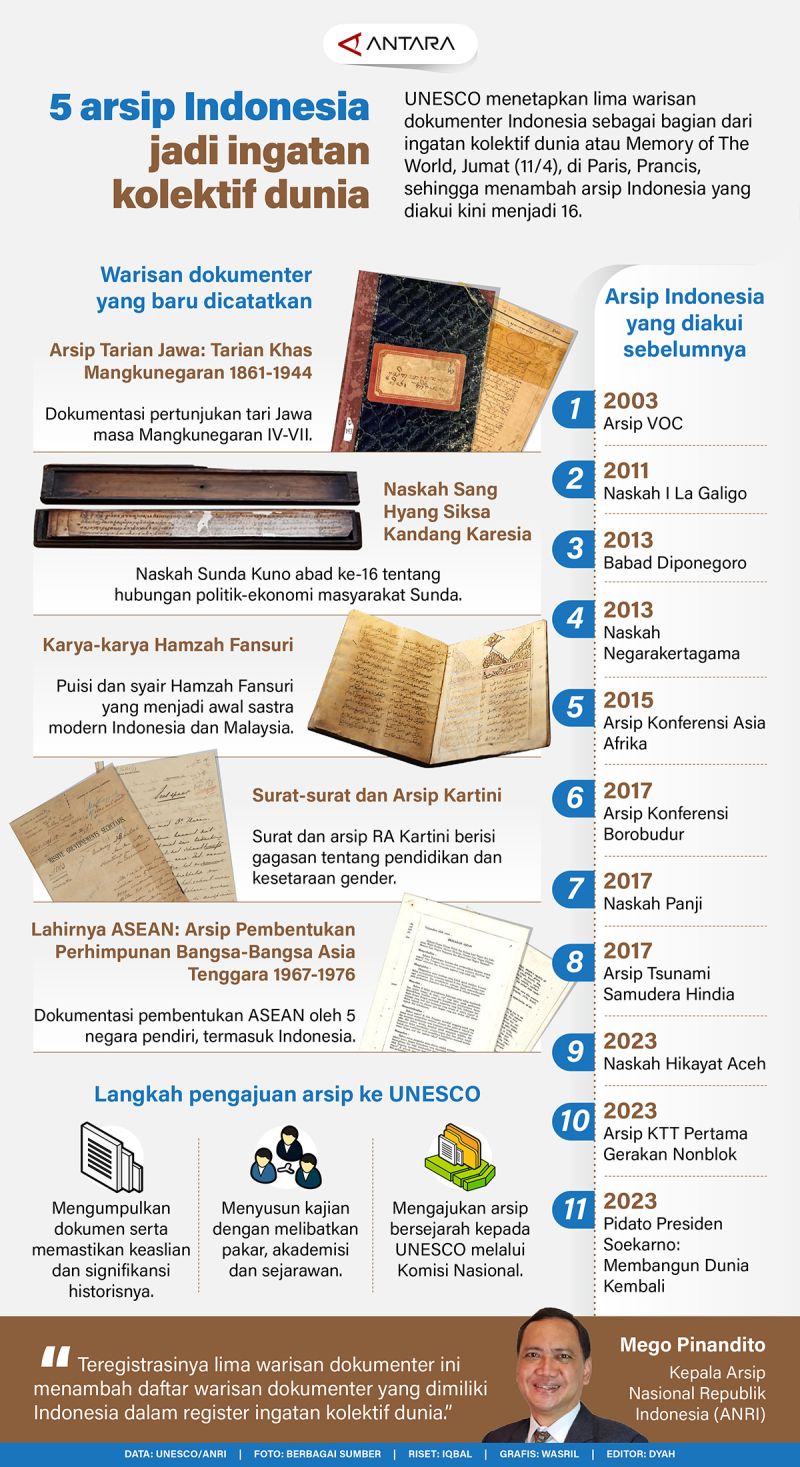 ANTARA
5 arsip Indonesia
jadi ingatan
kolektif dunia
UNESCO menetapkan lima warisan
dokumenter Indonesia sebagai bagian dari
ingatan kolektif dunia atau Memory of The
World, Jumat (11/4), di Paris, Prancis,
sehingga menambah arsip Indonesia yang
diakui kini menjadi 16.
Warisan dokumenter
yang baru dicatatkan
Arsip Tarian Jawa: Tarian Khas
Mangkunegaran 1861-1944
Dokumentasi pertunjukan tari Jawa
masa Mangkunegaran IV-VII.
Naskah Sang
Hyang Siksa
Kandang Karesia
Naskah Sunda Kuno abad ke-16 tentang
hubungan politik-ekonomi masyarakat Sunda.
Karya-karya Hamzah Fansuri
Puisi dan syair Hamzah Fansuri
yang menjadi awal sastra
modern Indonesia dan Malaysia.
Surat-surat dan Arsip Kartini
Surat dan arsip RA Kartini berisi
gagasan tentang pendidikan dan
kesetaraan gender.
Lahirnya ASEAN: Arsip Pembentukan
Perhimpunan Bangsa-Bangsa Asia
Tenggara 1967-1976
Dokumentasi pembentukan ASEAN oleh 5
negara pendiri, termasuk Indonesia.
Arsip Indonesia
yang diakui
sebelumnya
1 2003
Arsip VOC
2 2011
Naskah I La Galigo
3 2013
Babad Diponegoro
4 2013
Naskah
Negarakertagama
5 2015
Arsip Konferensi Asia
Afrika
6 2017
Arsip Konferensi
Borobudur
7 2017
Naskah Panji
8 2017
Arsip Tsunami
Samudera Hindia
9 2023
Naskah Hikayat Aceh
10 2023
Arsip KTT Pertama
Gerakan Nonblok
11 2023
Pidato Presiden
Soekarno:
Membangun Dunia
Kembali
Langkah pengajuan arsip ke UNESCO
Mengumpulkan
dokumen serta
memastikan keaslian
dan signifikansi
historisnya.
Menyusun kajian
dengan melibatkan
pakar, akademisi
dan sejarawan.
Mengajukan arsip
bersejarah kepada
UNESCO melalui
Komisi Nasional.
“ Teregistrasinya lima warisan dokumenter ini
menambah daftar warisan dokumenter yang dimiliki
Indonesia dalam register ingatan kolektif dunia.”
Mego Pinandito
Kepala Arsip
Nasional Republik
Indonesia (ANRI)
DATA: UNESCO/ANRI | FOTO: BERBAGAI SUMBER | RISET: IQBAL | GRAFIS: WASRIL | EDITOR: DYAH